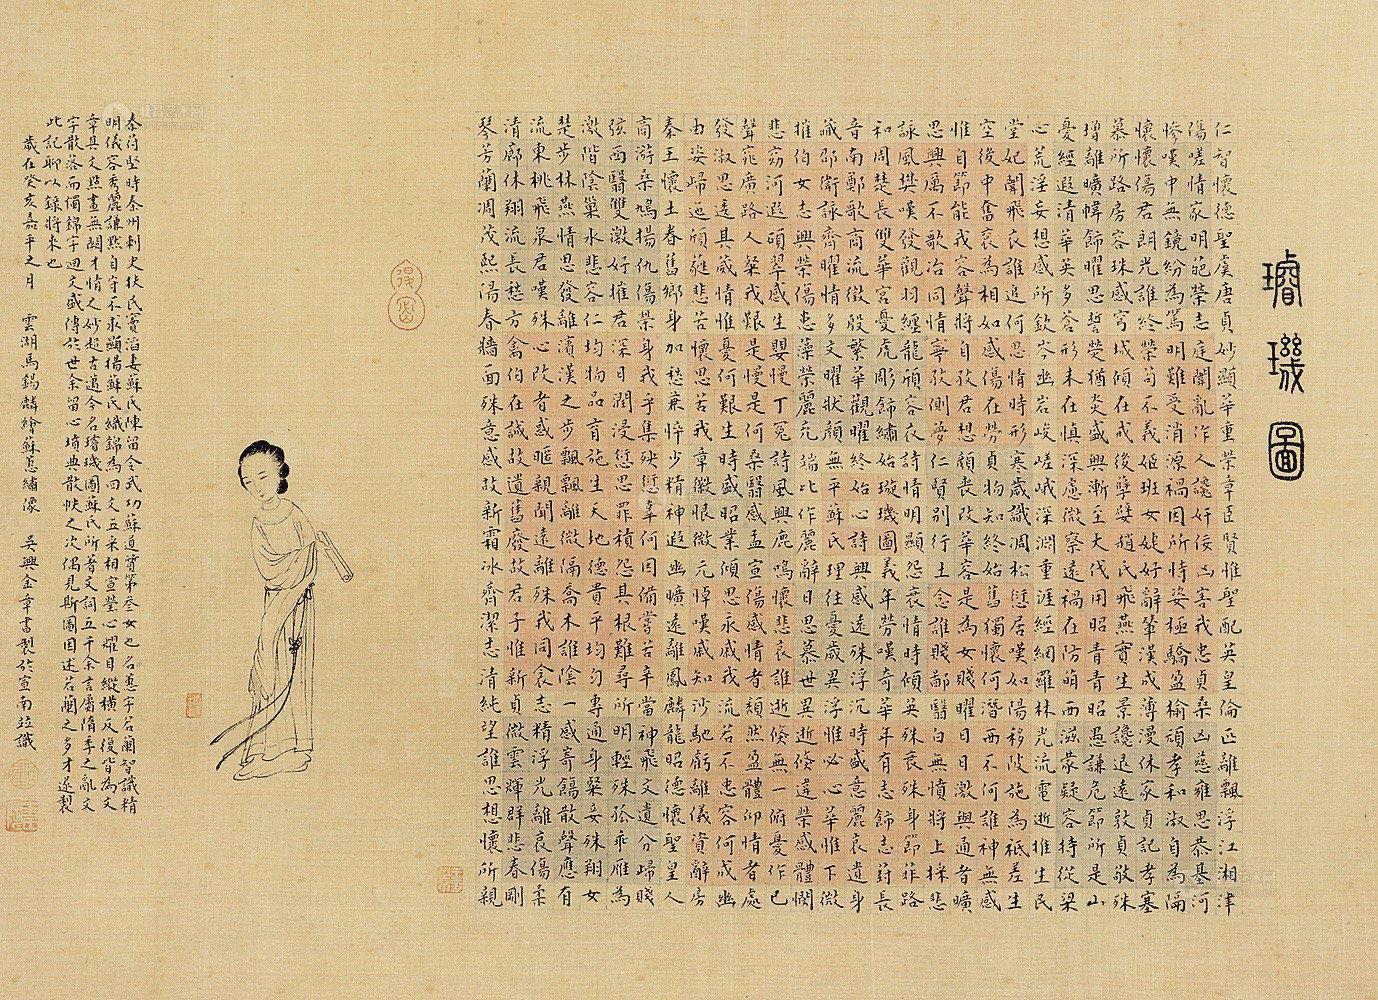 璿璣圖
仁智懷德聖虞唐貞妙顯華重榮章臣賢惟聖配英皇倫匹離飄浮江湘津
傷嗟情家明葩榮志庭闈亂作人讒奸佞凶害我忠貞桑凶慈雍思恭基河
慘嘆中無鏡紛為篤明難受消源禍因所恃姿極驕盈榆頑孝和淑自為隔
懷懷傷君朗光誰終榮苟不義姬班女婕妤辭輦漢成薄漫休家貞記孝塞
慕所路房容珠感穹城傾在戒後孽嬖趙氏飛燕實生景讒退遠敦貞敬殊
增離曠幃飾曜思誓熒猶炎盛興漸至大伐用昭青青昭愚謙危節所是山
憂經遐清華英多蒼形未在慎深慮微察遠禍在防萌西滋蒙疑容持從梁
心荒淫妄想感所欽岑幽岩峻嵯峨深淵重涯經網羅林光流電逝推生民
堂妃闈飛衣誰追何思情時形寒歲識凋松愆居嘆如陽移陂施為祗差生
空後中奮哀為相如感傷在勞貞物知終始舊獨懷何潛西不何誰神無感
惟自節能我容聲將自孜君想顏喪改華容是為女賤曜日日激與通者曠
思興厲不歌冶同情寧孜側夢仁賢別行士念誰賤鄙翳白無憤將上採悲
詠風樊嘆發觀羽纏龍頎容衣詩情明顯怨哀情時傾英殊喪殊身節菲路
和周楚長雙華宮憂虎彫飾繡始璇璣圖義年勞嘆奇華年有志飾志葑長
音南鄭歌商流徵殷繁華觀曜終始心詩興感遠殊浮沉時盛意麗哀遺身
藏邵衛詠齊曜情多文曜狀顏無平蘇氏理往憂歲異浮惟必心華惟下微
摧伯女志興榮傷患藻榮麗充端比作麗辭日思慕世異逝倏違榮感體憫
悲窈河遐碩翠感生嬰慢丁冤詩風興鹿鳴懷悲哀誰逝倏無一俯憂作已
聲窕廣路人粲我艱是慢是何桑翳感孟宣傷感情者頹然盈體仰情者處
發淑思逶其葳情惟憂何艱生時盛昭業傾思永戚我流若不忠容何成幽
由姿歸迤頎蕤悲苦懷思苦我章徽恨微元悼嘆戚知沙馳虧離儀資辭房
秦王懷土眷舊鄉身加愁兼悴少精神遐幽曠遠離鳳麟龍昭德懷聖皇人
商游桑鳩揚仇傷榮身我乎集殃愆辜何因備嘗苦辛當神飛文遺分歸賤
弦西翳雙激好摧君深日潤浸愆思罪積怨其根難尋所明輕殊孤乖雁為
激階陰巢水悲容仁均物品育施生天地德貴平均勻專通身粲妾殊翔女
楚步林燕情思發離濱漢之步飄飄離微隔喬木誰陰一感寄飾散聲應有
流東桃飛泉君嘆殊心改者惑暱親聞遠離殊我同衾志精浮光離哀傷柔
清廊休翔流長愁方禽伯在誠故遺舊廢故君子惟新貞微雲輝群悲春剛
琴芳蘭凋茂熙湯春牆面殊意感故新霜冰齊潔志清純望誰思想懷所親
秦苻堅時秦州刺史扶氏竇滔妻蘇氏陳留令武功蘇道質第叁女也名蕙字若蘭智識精
明儀容秀麗謙默自守不求顯揚蘇氏織錦為回文五采相宣瑩心耀目縱橫反復皆為文
章其文點畫無闕才情之妙超古邁今名璿璣圖蘇氏所著文詞五千余言屬隋季之亂文
字散落而獨錦字迴文盛傳於世余留心墳典散帙之次偶見斯圖因述若蘭之多才遂製
此記聊以錄將來也
歲在癸亥嘉平之月 雲湖馬錫麟繪蘇蕙繡像 吳興金章書製於宣南並識